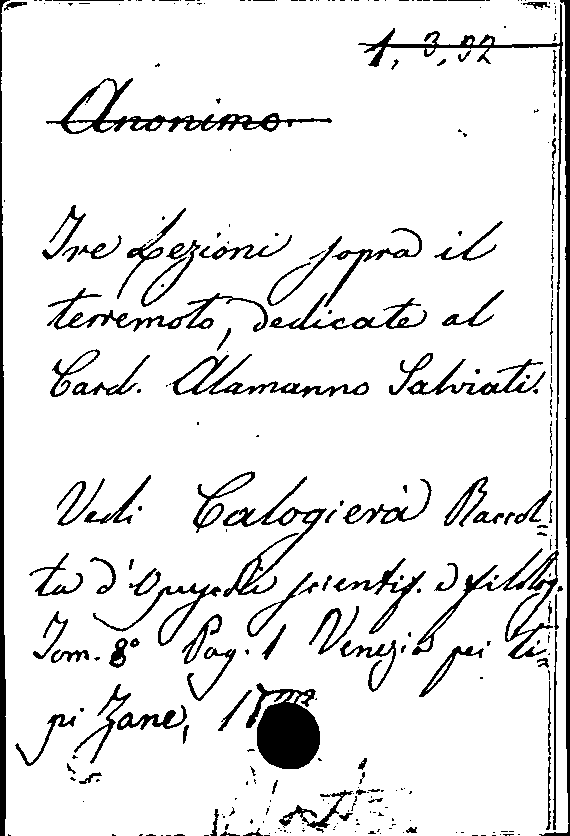 1, 3, 32
Anonimo.
Tre Lezioni sopra il
terremoto, dedicate al
Card. Alamanno Salviati.
Vedi Calogierà Raccol=
ta d'Opuscoli scientif. e filolog.
Tom. 8º Pag. 1 Venezia pei ti=
pi Zane,